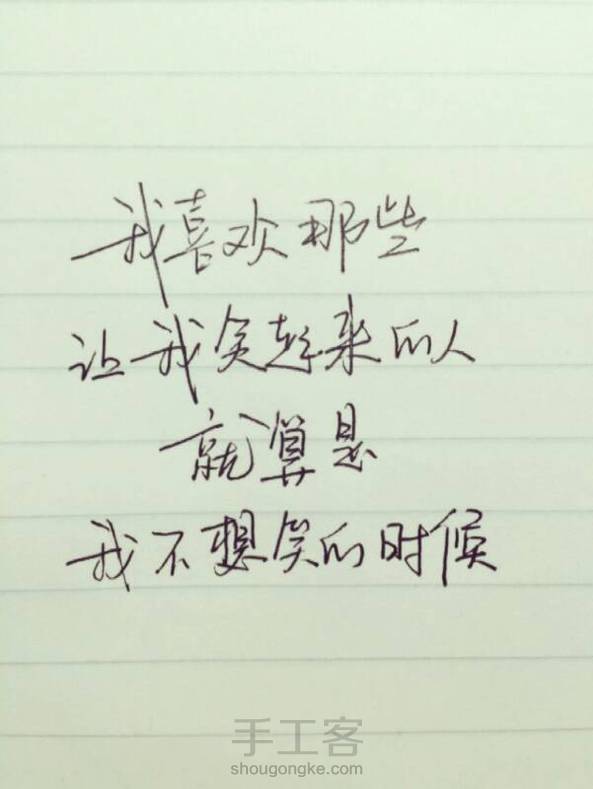 我喜欢那些
让我笑起来的人
就算是
我不想笑的时候
手工客
shougongke.com